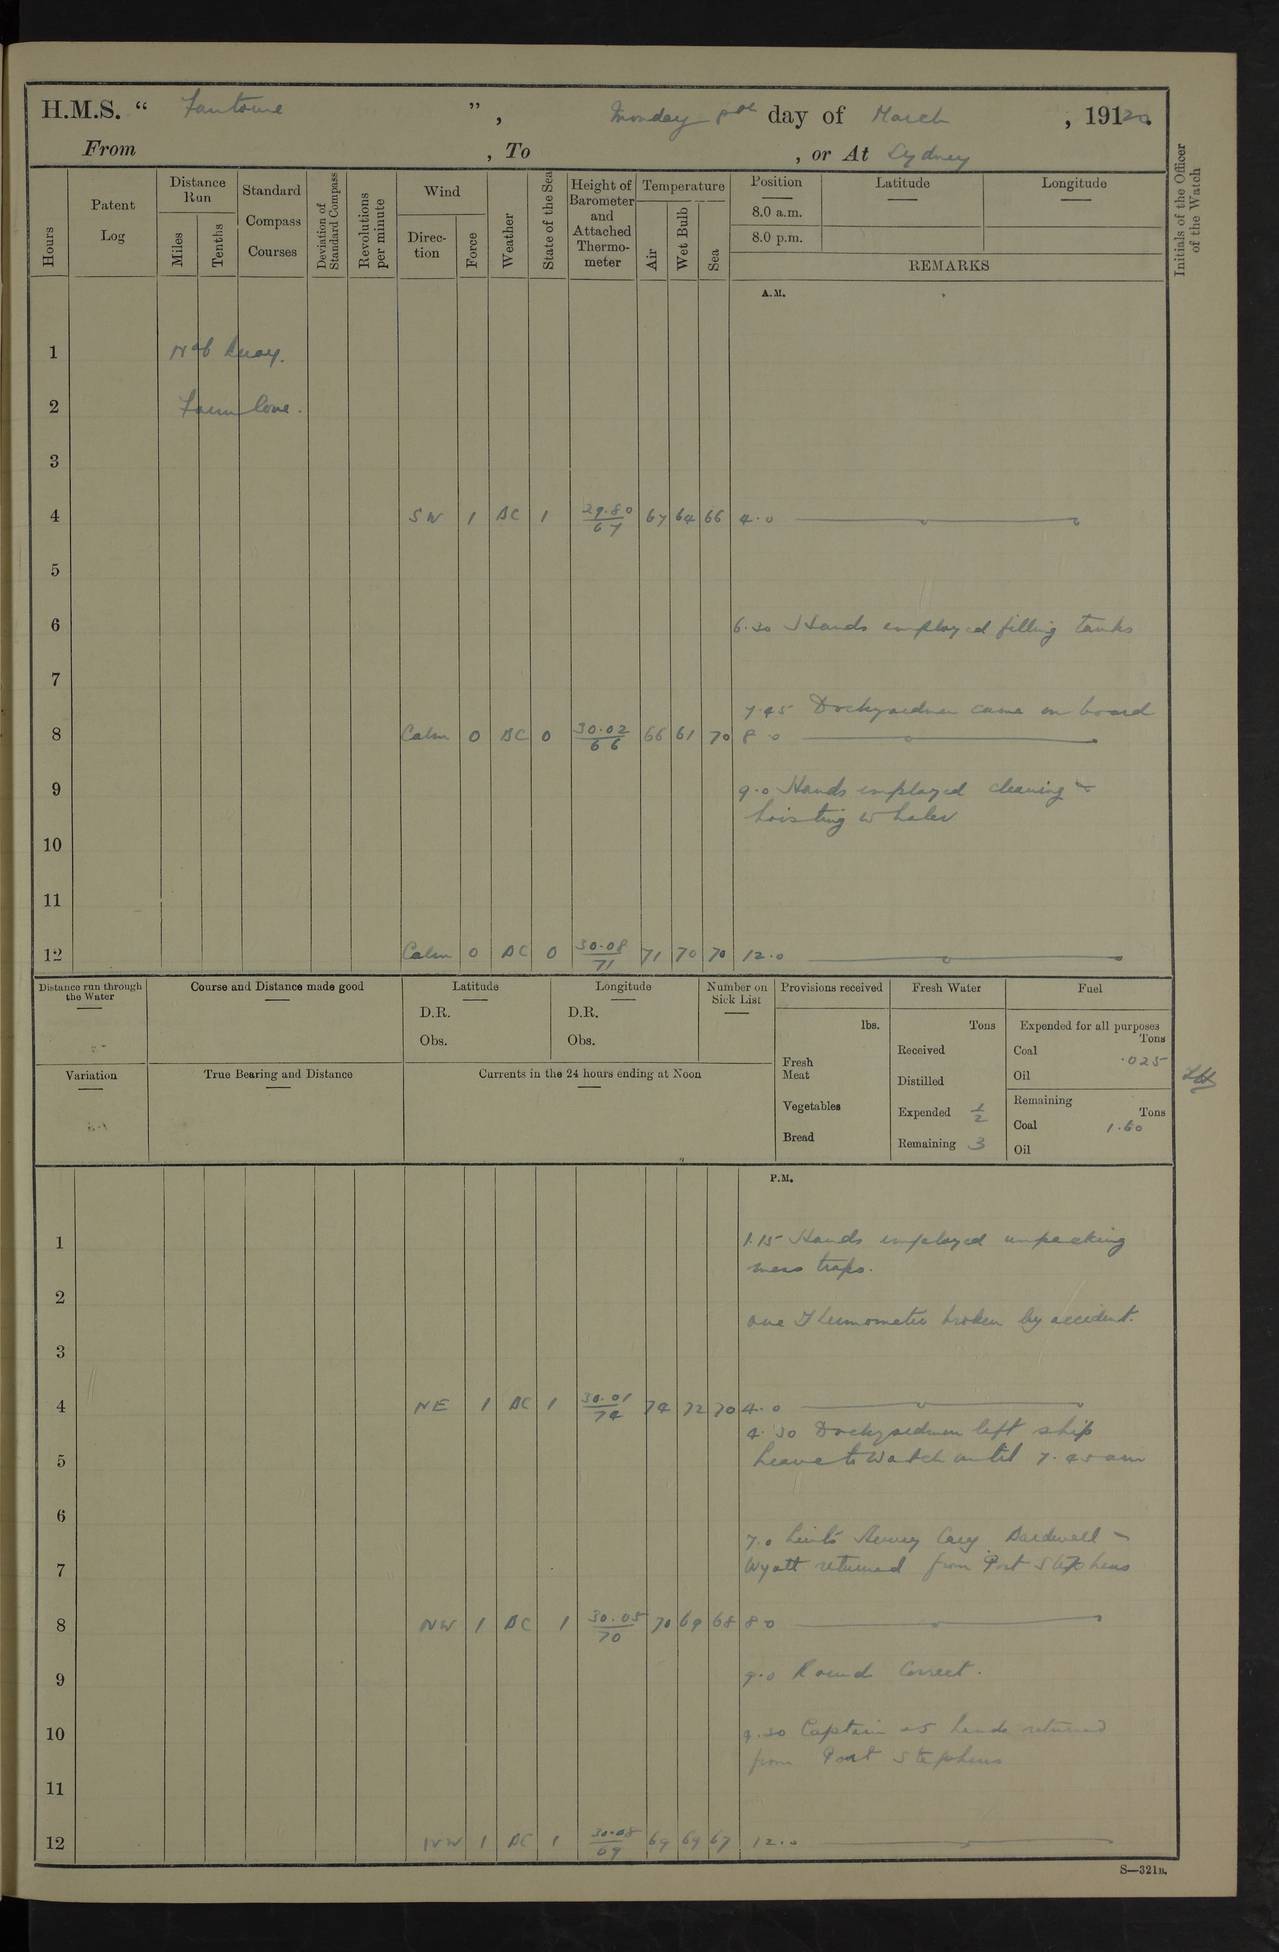 H.M.S. “ Fantome ” , Monday 8th day of March , 19120.
From , To , or At Sydney
Hours
Patent Log
Distance Run
Miles
Tenths
Standard Compass Courses
Deviation of Standard Compass
Revolutions per minute
Wind
Direc-tion
Force
Weather
State of the Sea
Height of Barometer and Attached Thermo-meter
Temperature
Air
Wet Bulb
Sea
Position
8.0 a.m.
8.0 p.m.
Latitude
Longitude
REMARKS
Initials of the Officer of the Watch
A.M.
1 No 6 Buoy.
2 Farm Cove.
3
4 SW 1 BC 1 29.80/67 67 64 66 4.0
5
6 6.30 Hands employed filling tanks
7
7.45 Dockyardmen came on board
8 Calm 0 BC 0 30.02/66 66 61 70 8 0
9 9.0 Hands employed cleaning &
hoisting whaler
10
11
12 Calm 0 BC 0 30.08/71 71 70 70 12.0
Distance run through the Water
Course and Distance made good
Latitude
D.R.
Obs.
Longitude
D.R.
Obs.
Number on Sick List
Provisions received
lbs.
Fresh Meat
Vegetables
Bread
Fresh Water
Tons
Received
Distilled
Expended 1/2
Remaining 3
Fuel
Expended for all purposes
Tons
Coal .025
Oil
Remaining
Tons
Coal 1.60
Oil
Variation
True Bearing and Distance
Currents in the 24 hours ending at Noon
P.M.
1 1.15 Hands employed unpacking
mess traps.
2
one Thermometer broken by accident.
3
4 NE 1 BC 1 30.01/74 74 72 70 4.0
4.30 Dockyardmen left ship
5 Leave to Watch until 7.45 am
6
7.0 Lieuts Cary Bardwell &
7 Wyatt returned from Port Stephens
8 NW 1 BC 1 30.05/70 70 69 68 8 0
9 9.0 Rounds Correct.
10 9.30 Captain & 5 hands returned
from Port Stephens
11
12 NW 1 BC 1 30.08/69 69 69 67 12.0
S—321B.